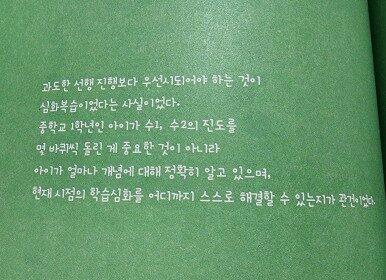 과도한 선행 진행보다 우선시되어야 하는 것이
심화복습이었다는 사실이었다.
중학교 1학년인 아이가 수1, 수2의 진도를
몇 바퀴씩 돌린 게 중요한 것이 아니라
아이가 얼마나 개념에 대해 정확히 알고 있으며,
현재 시점의 학습심화를 어디까지 스스로 해결할 수 있는지가 관건이었다.